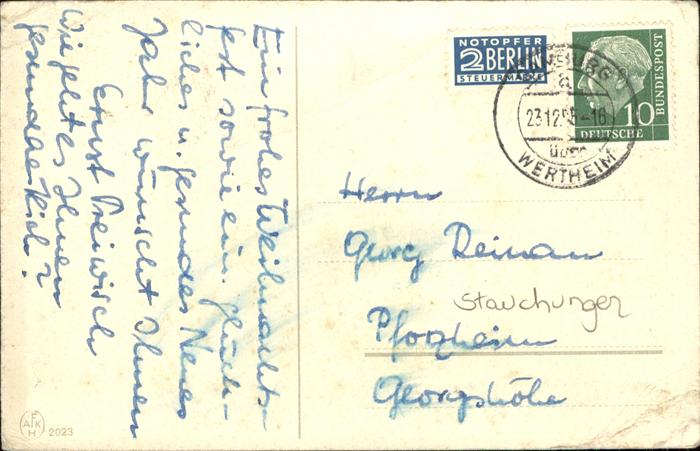 Ein frohes Weihnachts-
fest sowie ein. glück-
liches u. gesundes Neues
Jahr wünscht Ihnen
Ernst Preiwisch
Wie geht es Ihnen
gesundheitlich?
NOTOPFER
2 BERLIN
STEUERMARKE
10
DEUTSCHE
BUNDESPOST
a
23.12.55-16
über
WERTHEIM
Herrn
Georg Reinau
Stauchungen
Pforzheim
Georgshöhe
AFKH 2023